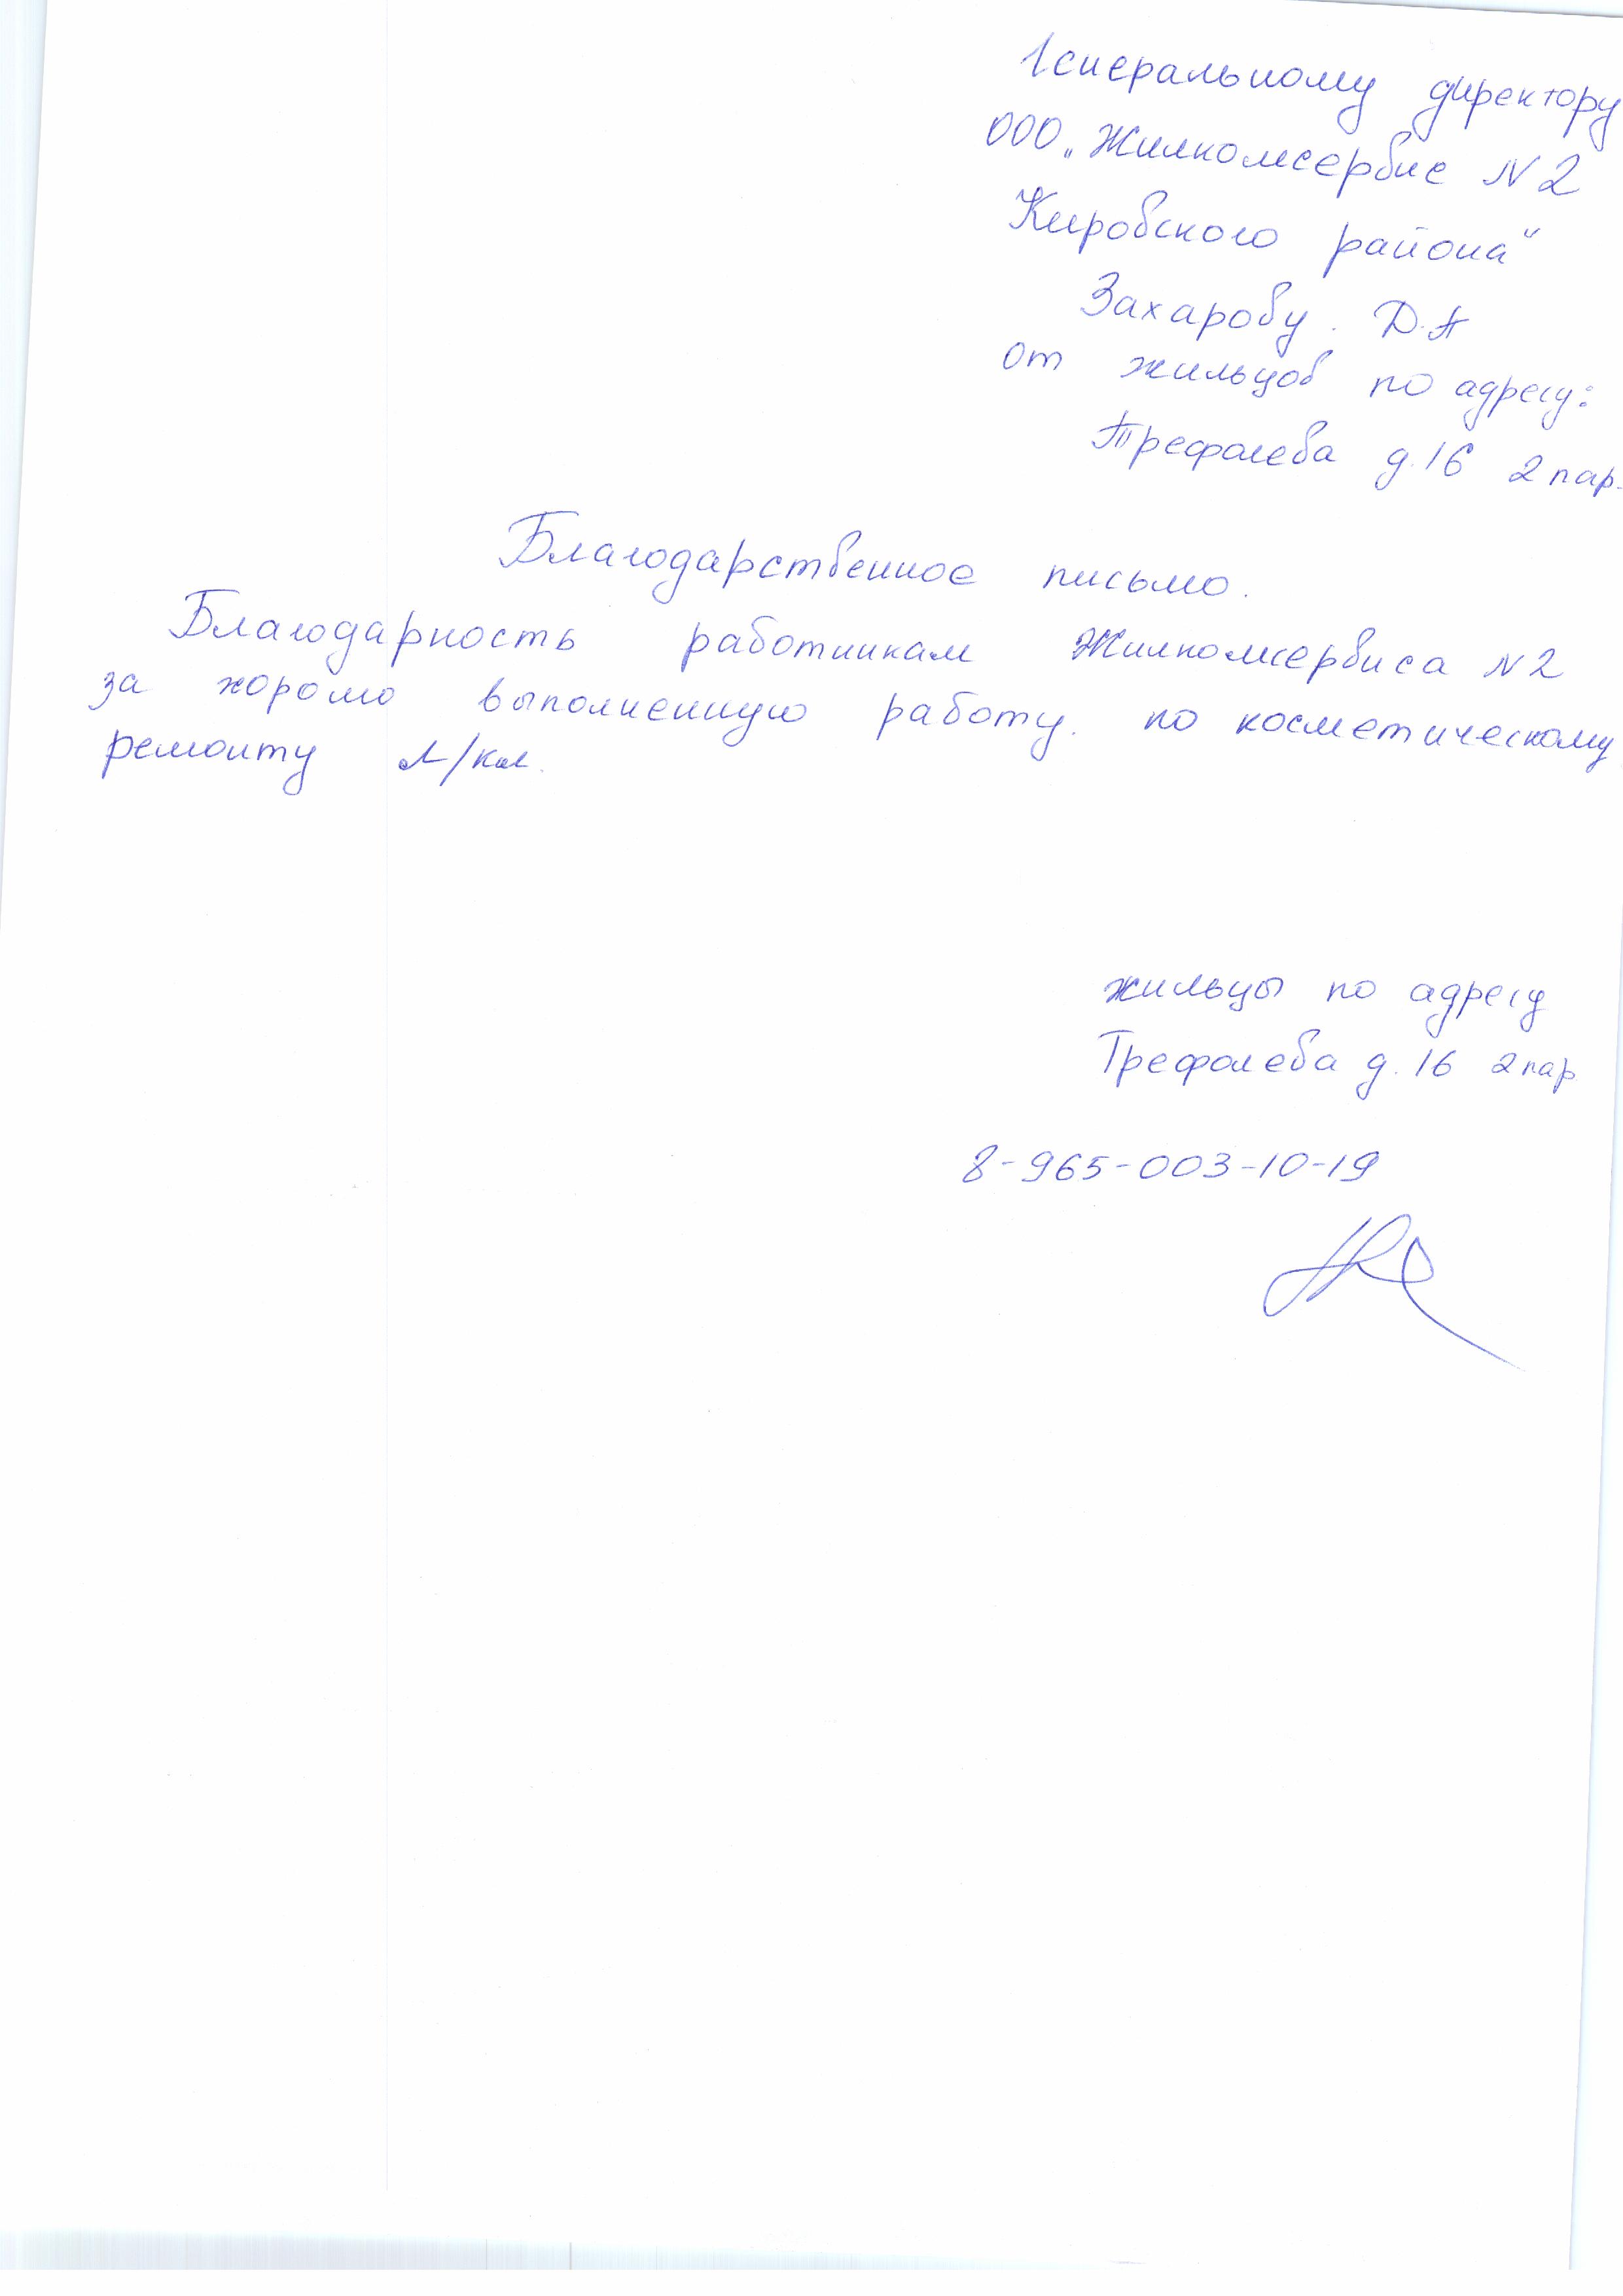 Генеральному директору
ООО „Жилкомсервис N2
Кировского района“
Захарову. Д.А
от жильцов по адресу:
Трефолева д.16 2 пар.
Благодарственное письмо.
Благодарность работникам Жилкомсервиса N2
за хорошо выполненную работу. по косметическому
ремонту л/кл.
жильцы по адресу
Трефолева д.16 2 пар
8-965-003-10-19